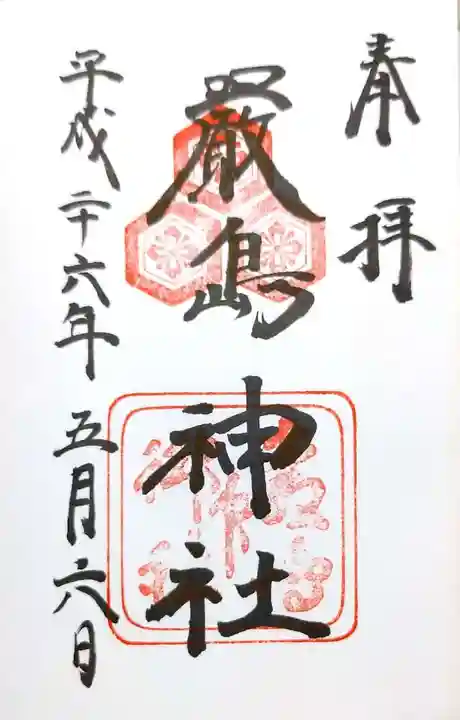 奉拝
嚴島神社
平成二十六年五月六日